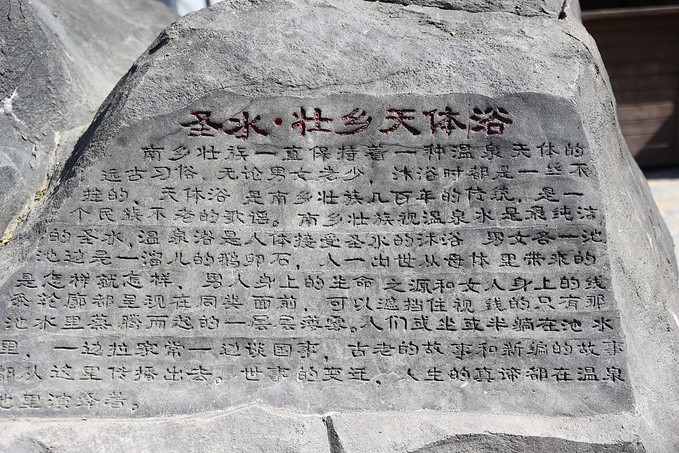 圣水·壮乡天体浴
南乡壮族一直保持着一种温泉天体的
远古习俗，无论男女老少，沐浴时都是一丝不
挂的，天体浴是南乡壮族几百年的传统，是一
个民族不老的歌谣。南乡壮族视温泉水是最纯洁
的圣水，温泉浴是人体接受圣水的沐浴 男女各一池
池边是一溜儿的鹅卵石，人一出世从母体里带来的
是怎样就怎样，男人身上的生命之源和女人身上的线
条轮廓都呈现在同半面前，可以遮挡住视线的只有那
池水里蒸腾而起的一层层薄雾。人们或坐或半躺在池水
里，一边拉家常一边谈国事，古老的故事和新编的故事
都从这里传播出去。世事的变迁，人生的真谛都在温泉
池里演绎着。